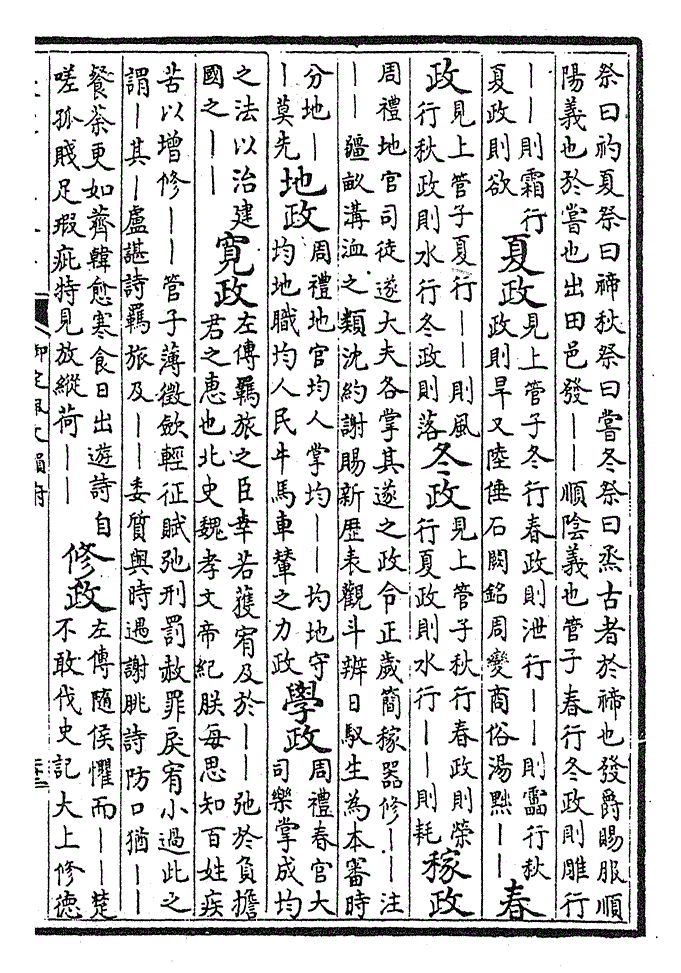 祭曰礿夏祭曰禘秋祭曰嘗冬祭曰烝古者於禘也發爵賜服順
陽義也於嘗也出田邑發——順陰義也管子春行冬政則雕行
——則霜行
夏政則欲
夏政
見上管子冬行春政則泄行——則雷行秋
政則旱又陸倕石闕銘周變商俗湯黜——
春
政
見上管子夏行——則風
行秋政則水行冬政則落
冬政
見上管子秋行春政則榮
行夏政則水行——則耗
稼政
周禮地官司徒遂大夫各掌其遂之政令正歲簡稼器修——注
——疆畝溝洫之類沈約謝賜新歷表觀斗辨日馭生為本審時
分地—
—莫先
地政
周禮地官均人掌均——均地守
均地職均人民牛馬車輦之力政
學政
周禮春官大
司樂掌成均
之法以治建
國之——
寛政
左傳羈旅之臣幸若獲宥及於——弛於負擔
君之惠也北史魏孝文帝紀朕每思知百姓疾
苦以增修——管子薄徵歛輕征賦弛刑罰赦罪戾宥小過此之
謂—其—盧諶詩羈旅及——委質與時遇謝朓詩防口猶——
餐荼更如薺韓愈寒食日出遊詩自
嗟孤賤足瑕疵特見放縱荷——
修政
左傳隨侯懼而——楚
不敢伐史記大上修德